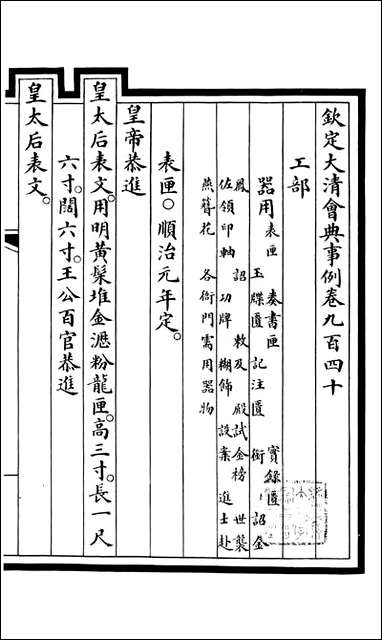 欽定大清會典事例卷九百四十
工部
器用 表匣 奏書匣 實錄匣
玉牒匱 記注匱 銜詔金
鳳 詔敕及殿試金榜 世襲
佐領印軸 功牌 糊飾 設案 進士赴
燕簪花 各衙門需用器物
表匣○順治元年定。
皇帝恭進
皇太后表文。用明黃髹堆金瀝粉龍匣。高三寸。長一尺
六寸。闊六寸。王公百官恭進
皇太后表文。